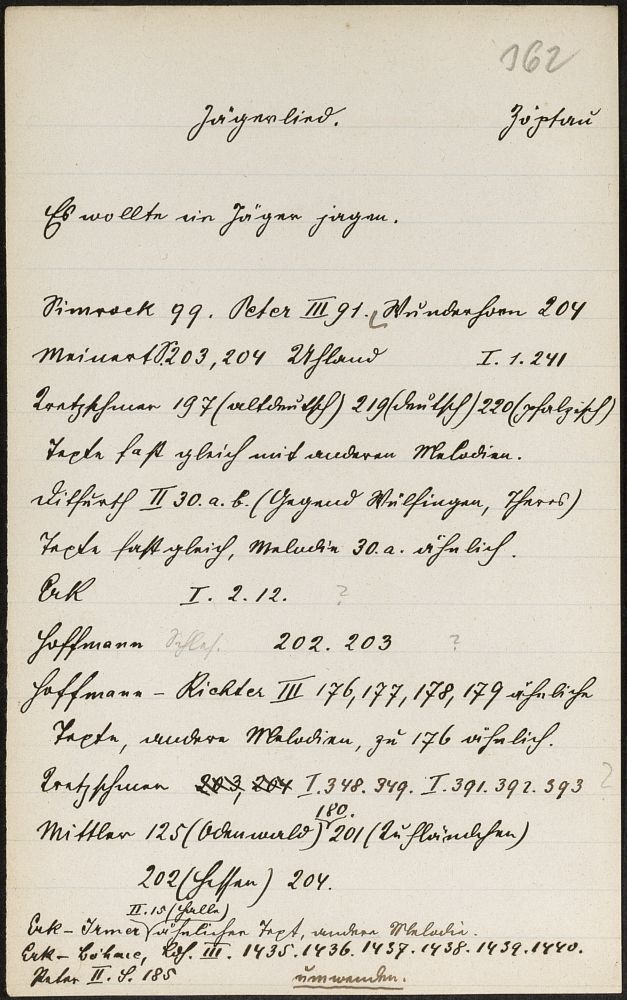 162
Jägerlied. Zöptau
Es wollte ein Jäger jagen.
Simrock 99. Peter III 91. Wunderhorn 204
Meinert S. 203, 204 Uhland I. 1. 241
Kretzschmer 197 (altdeutsch) 219 (deutsch) 220 (pfalzisch)
Texte fast gleich mit anderen Melodien.
Ditfurth II 30. a. b. (Gegend Wülfingen, Theres)
Texte fast gleich, Melodie 30. a. ähnlich.
Erk I. 2. 12. ?
Hoffmann Schles. 202. 203 ?
Hoffmann - Richter III 176, 177, 178, 179 ähnliche
Texte, andere Melodien, zu 176 ähnlich.
Kretzschmer 203, 204 I. 348. 349. I. 391. 392. 393 ?
180.
Mittler 125 (Odenwald) 201 (Kuhländchen)
202 (Hessen) 204.
II. 15 (Halle)
Erk - Irmer ähnlicher Text, andere Melodie.
Erk - Böhme, Ldh. III. 1435. 1436. 1437. 1438. 1439. 1440.
Peter II. S. 185 umwenden.